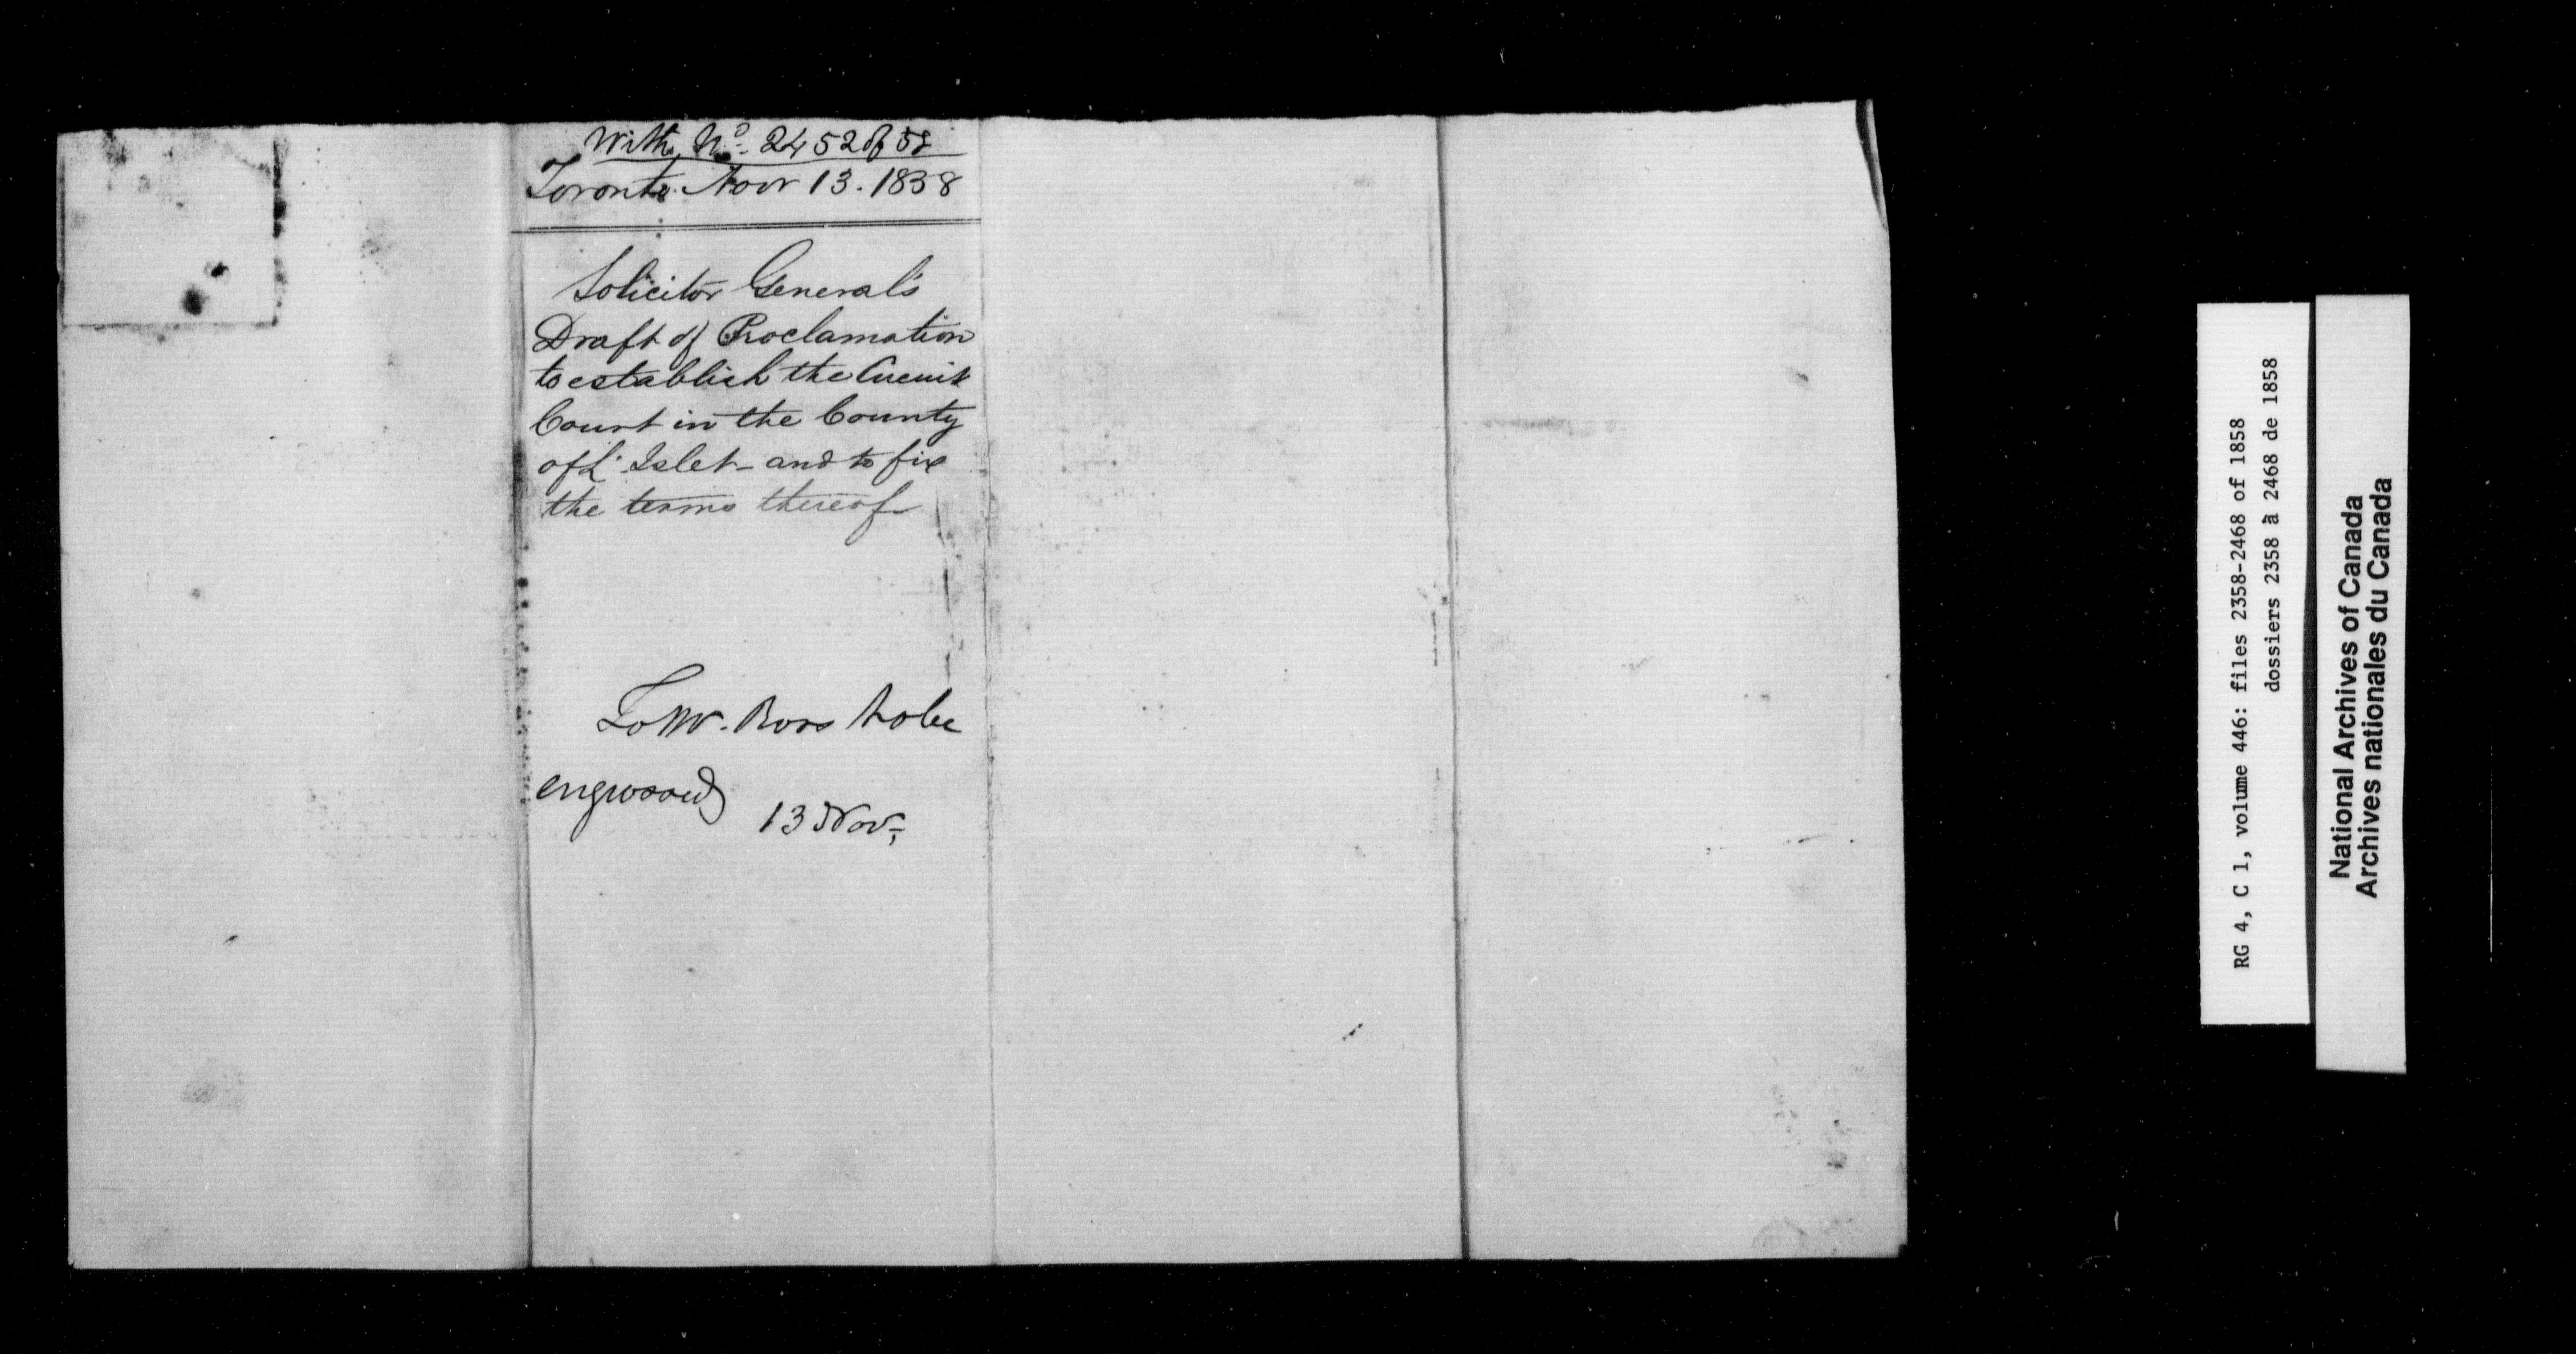 With No. 2452 of 58
Toronto Novr 13. 1838
Solicitor General's
Draft of Proclamation
to establish the Circuit
Court in the County
of L'Islet - and to fix
the terms thereof
To Mr. Ross to be
engrossed
13 Nov,
RG 4, C 1, volume 446: files 2358-2468 of 1858
dossiers 2358 à 2468 de 1858
National Archives of Canada
Archives nationales du Canada